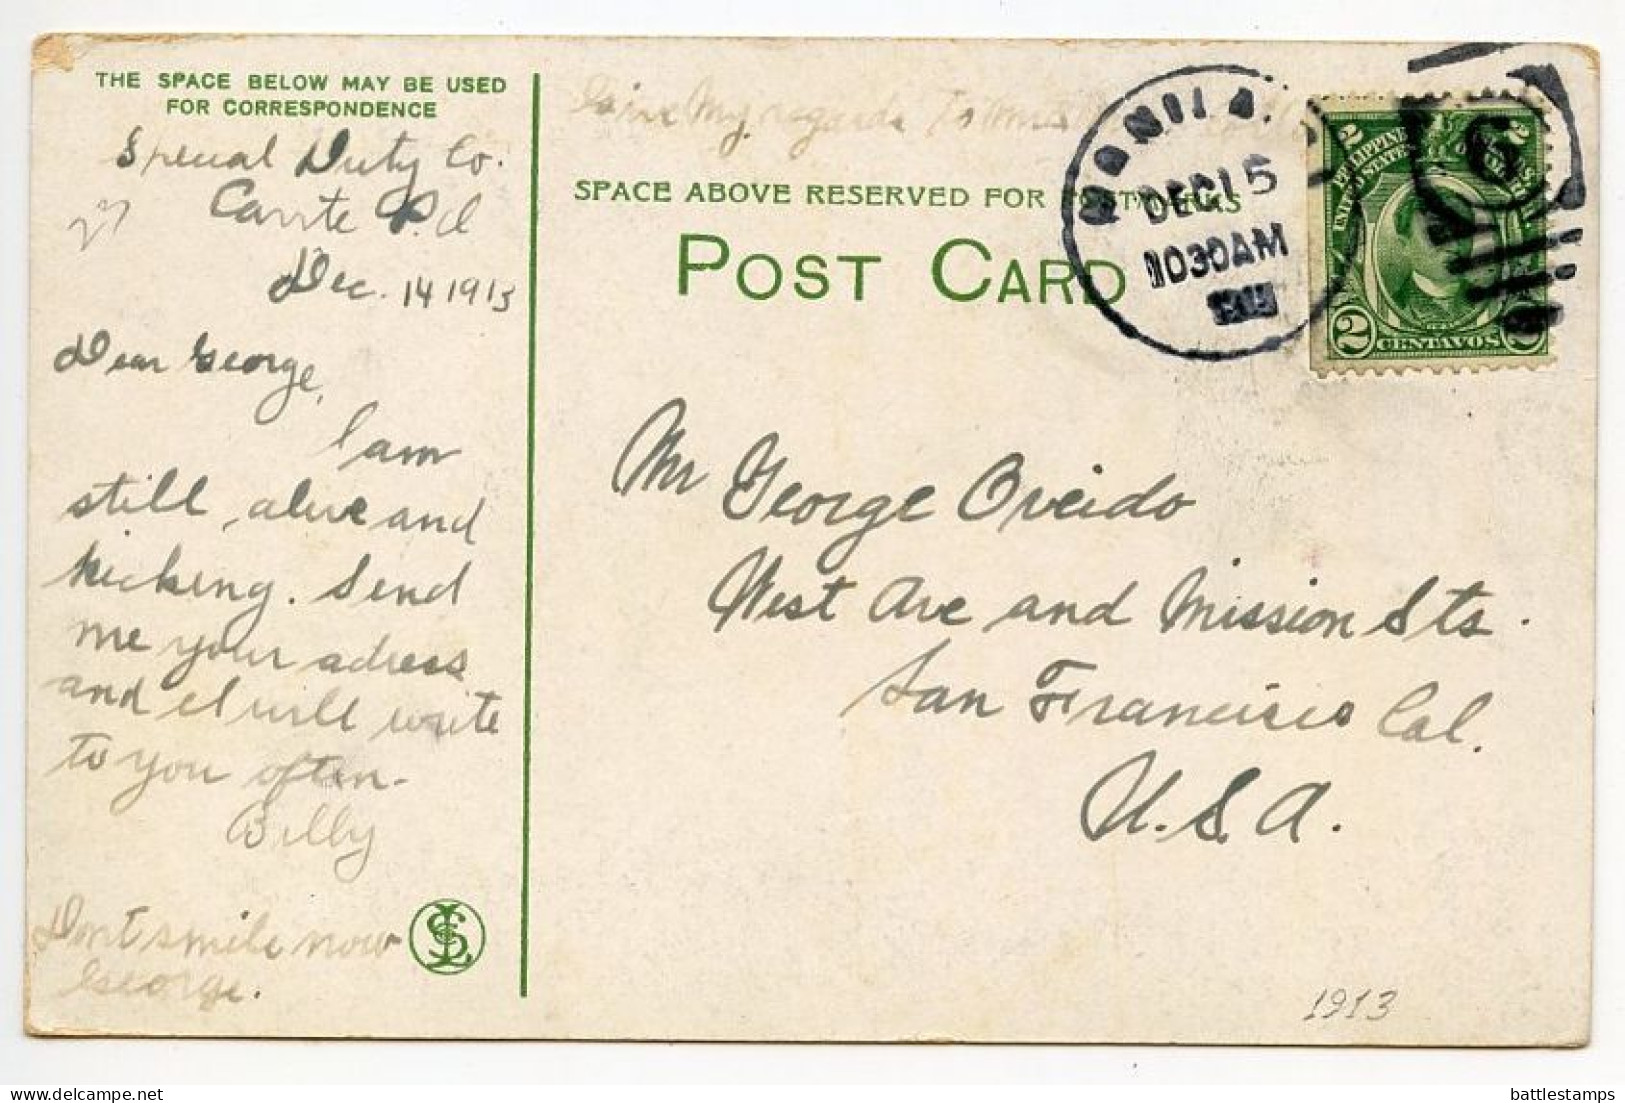 THE SPACE BELOW MAY BE USED
FOR CORRESPONDENCE
Special Duty Co.
27
Dec. 14 1913
Dear George,
I am
still, alive and
kicking. Send
me your adress
and I will write
to you often-
Billy
Dont smile now
George.
Give My regards to
SPACE ABOVE RESERVED FOR POSTMARKS
POST CARD
MANILA
DEC 15
1030AM
PHILIPPINE
UNITED STATES
2 CENTAVOS 2
Mr George Oveido
West Ave and Mission Sts.
San Francisco Cal.
U.S.A.
1913
battlestamps